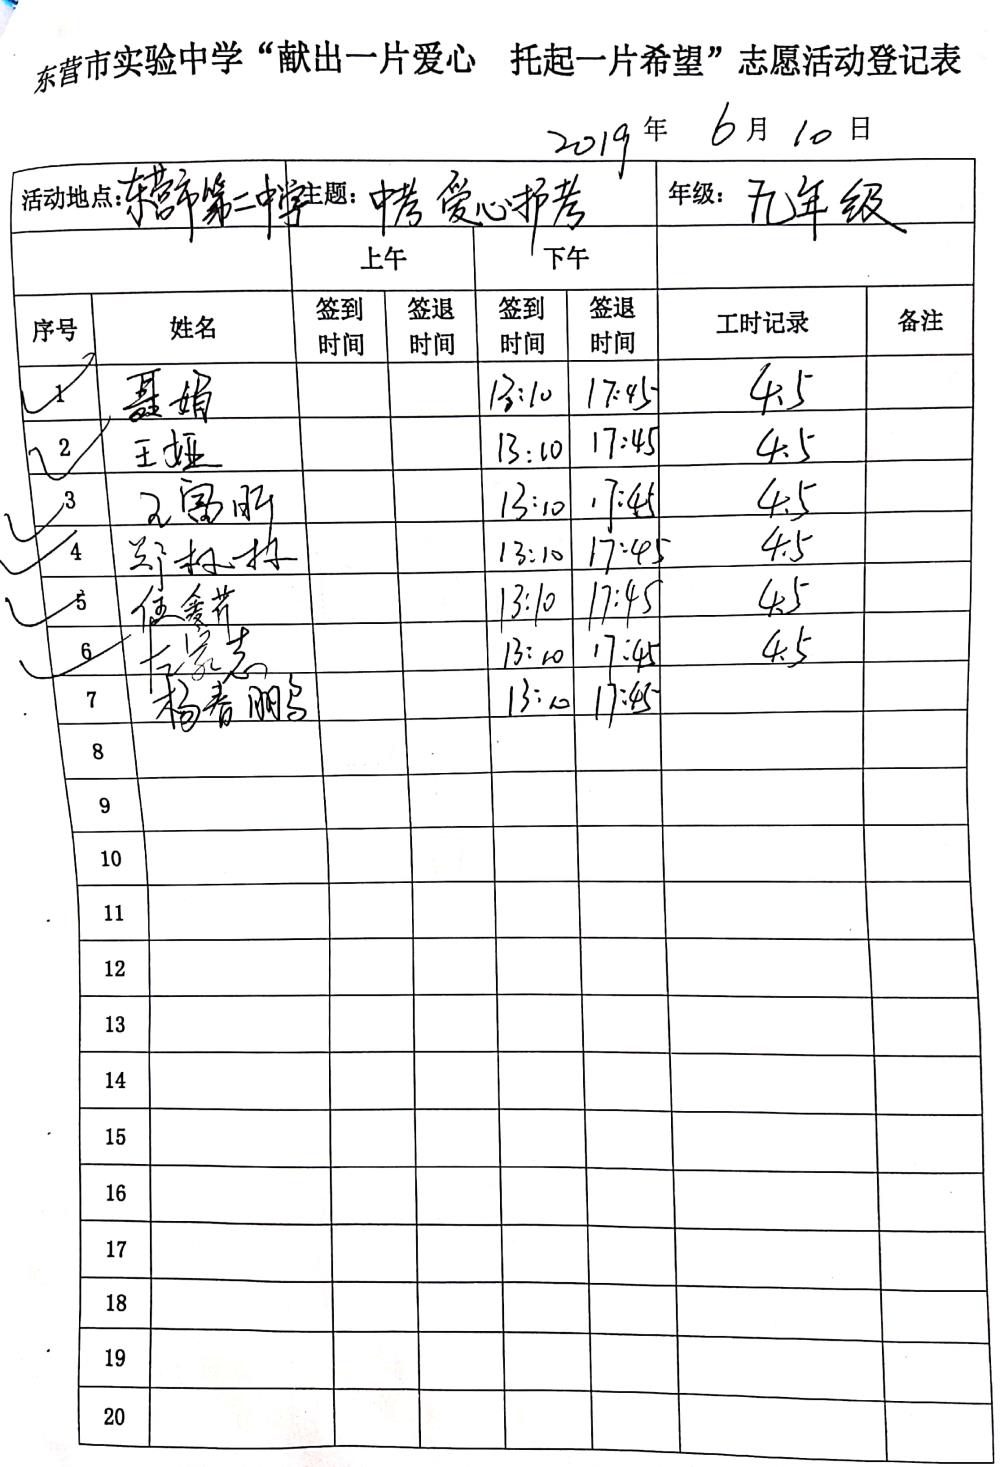 东营市实验中学“献出一片爱心 托起一片希望”志愿活动登记表
2019年 6月10日
活动地点:东营市第二中学 主题:中考爱心护考 年级:九年级
上午 下午
序号 姓名 签到时间 签退时间 签到时间 签退时间 工时记录 备注
1 聂娟 13:10 17:45 4.5
2 王娅 13:10 17:45 4.5
3 王富昕 13:10 17:45 4.5
4 郑林林 13:10 17:45 4.5
5 13:10 17:45 4.5
6 13:10 17:45 4.5
7 杨春鹏 13:10 17:45
8
9
10
11
12
13
14
15
16
17
18
19
20